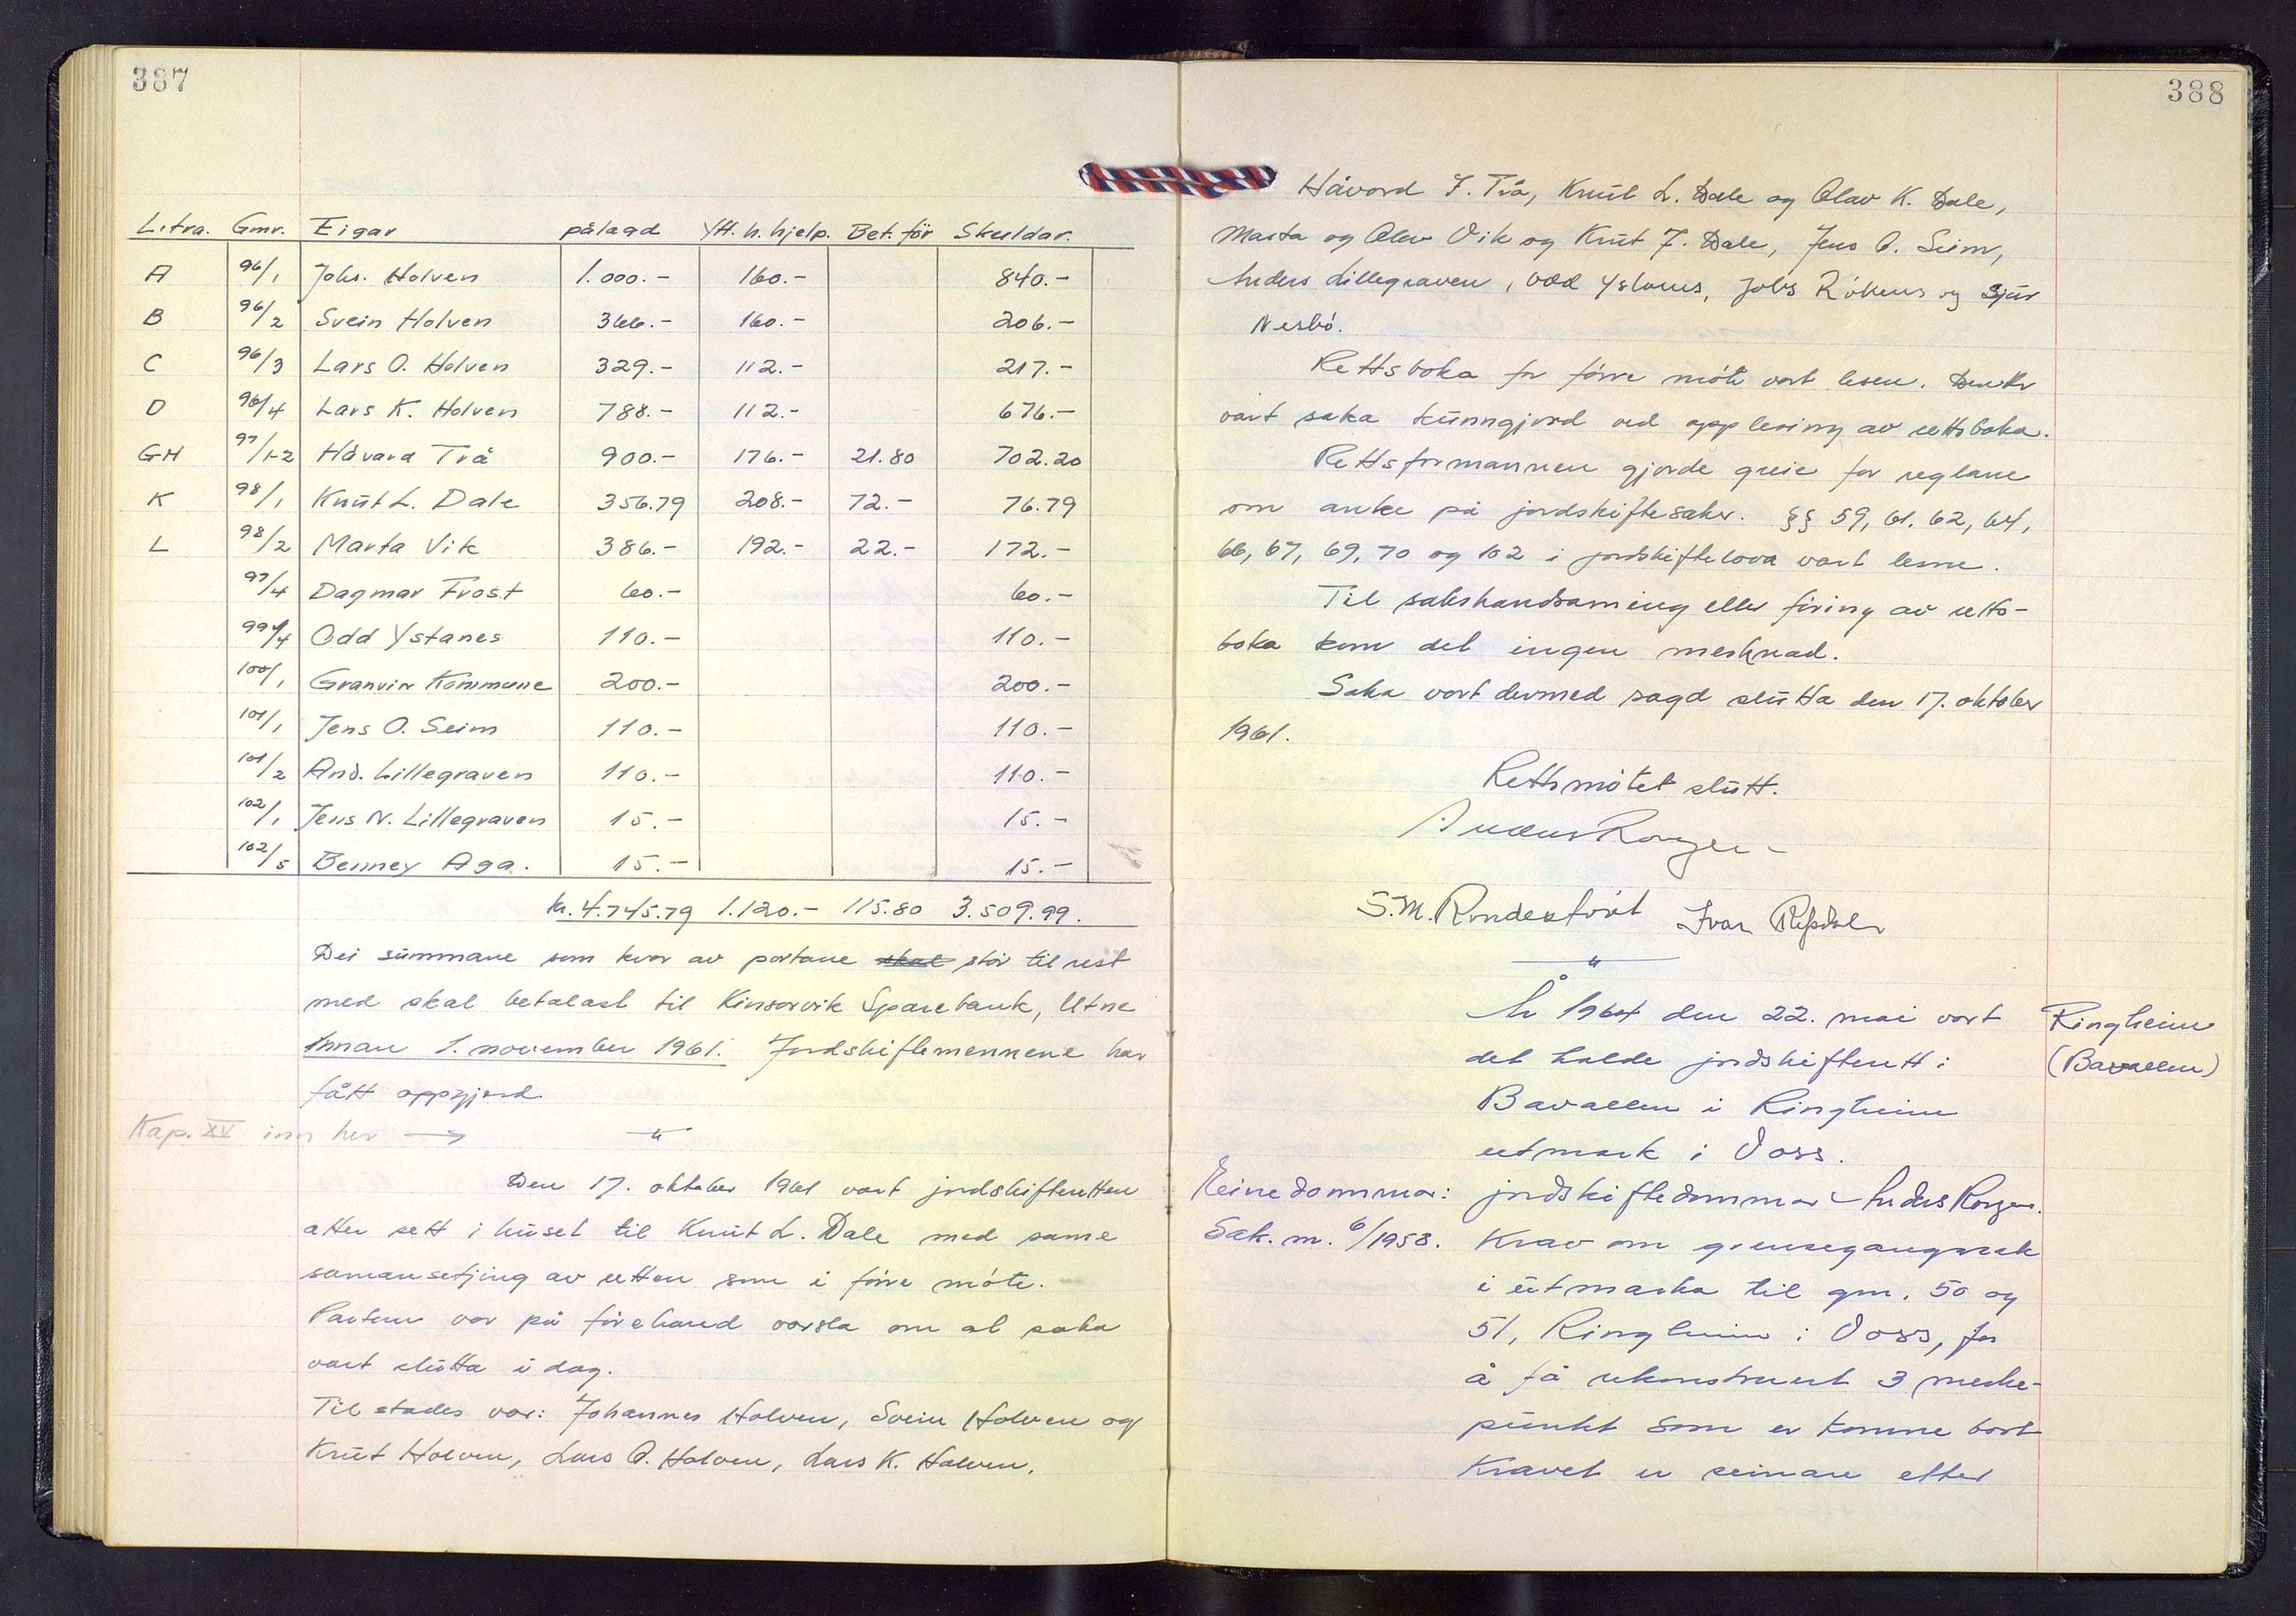 387
Litra. Gnr. Eigar pålagd Yt. h. hjelp. Bet. för Skuldar.
A 96/1 Johs. Holven 1.000.- 160.- 840.-
B 96/2 Svein Holven 366.- 160.- 206.-
C 96/3 Lars O. Holven 329.- 112.- 217.-
D 96/4 Lars K. Holven 788.- 112.- 676.-
GH 97/1-2 Håvard Trå 900.- 176.- 21.80 702.20
K 98/1 Knut L. Dale 356.79 208.- 72.- 76.79
L 98/2 Marta Vik 386.- 192.- 22.- 172.-
97/4 Dagmar Frost 60.- 60.-
99/4 Odd Ystanes 110.- 110.-
100/1 Granvin Kommune 200.- 200.-
101/1 Jens O. Seim 110.- 110.-
101/2 And. Lillegraven 110.- 110.-
102/1 Jens N. Lillegraven 15.- 15.-
102/5 Benney Aga. 15.- 15.-
kr. 4.745.79 1.120.- 115.80 3.509.99.
Dei summane som kvar av partane skal står til rest
med skal betalast til Kinsarvik Sparebank, Utne
innan 1. november 1961. Jordskiftemennene har
fått oppgjerd.
Kap. XV inn her →
Den 17. oktober 1961 vart jordskifteretten
atter sett i huset til Knut L. Dale med same
samansetjing av retten som i førre møte.
Partene var på førehand varsla om at saka
vart slutta i dag.
Til stades var: Johannes Holven, Svein Holven og
Knut Holven, Lars O. Holven, Lars K. Holven,
388
Håvard J. Trå, Knut L. Dale og Olav K. Dale,
Marta og Olav Vik og Knut J. Dale, Jens O. Seim,
Anders Lillegraven, Odd Ystanes, Johs Røkenes og Sjur
Nesbø.
Rettsboka for førre møte vart lesen. Deretter
vart saka kunngjord ved opplesing av rettsboka.
Rettsformannen gjorde greie for reglane
om anke på jordskiftesaker. §§ 59, 61. 62, 64,
66, 67, 69, 70 og 102 i jordskiftelova vart lesne.
Til sakshandsaming eller føring av retts-
boka kom det ingen merknad.
Saka vart dermed sagd slutta den 17. oktober
1961.
Rettsmøtet slutt.
Anders Ronge
S.M. Rondestveit Ivar
År 1964 den 22. mai vart Ringheim
det halde jordskifterett i (Bavallen)
Bavallen i Ringheim
utmark i Voss.
Einedommar: jordskiftedommar Anders Ronge.
Sak. nr. 6/1958. Krav om grensegangssak
i utmarka til gnr. 50 og
51, Ringheim i Voss, for
å få rekonstruert 3 merke-
punkt som er komne bort
Kravet er seinare etter